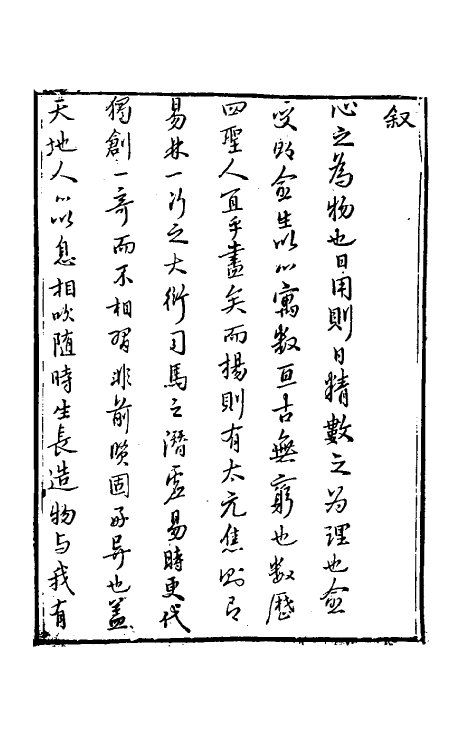 叙
心之為物也日用則日精數之為理也愈
受即愈生以心寓數亘古無窮也數歷
四聖人宜乎盡矣而揚則有太元焦則有
易林一行之大衍司馬之潛虛易時更代
獨創一奇而不相習非前賢固好異也蓋
天地人心以息相吹隨時生長造物与我有